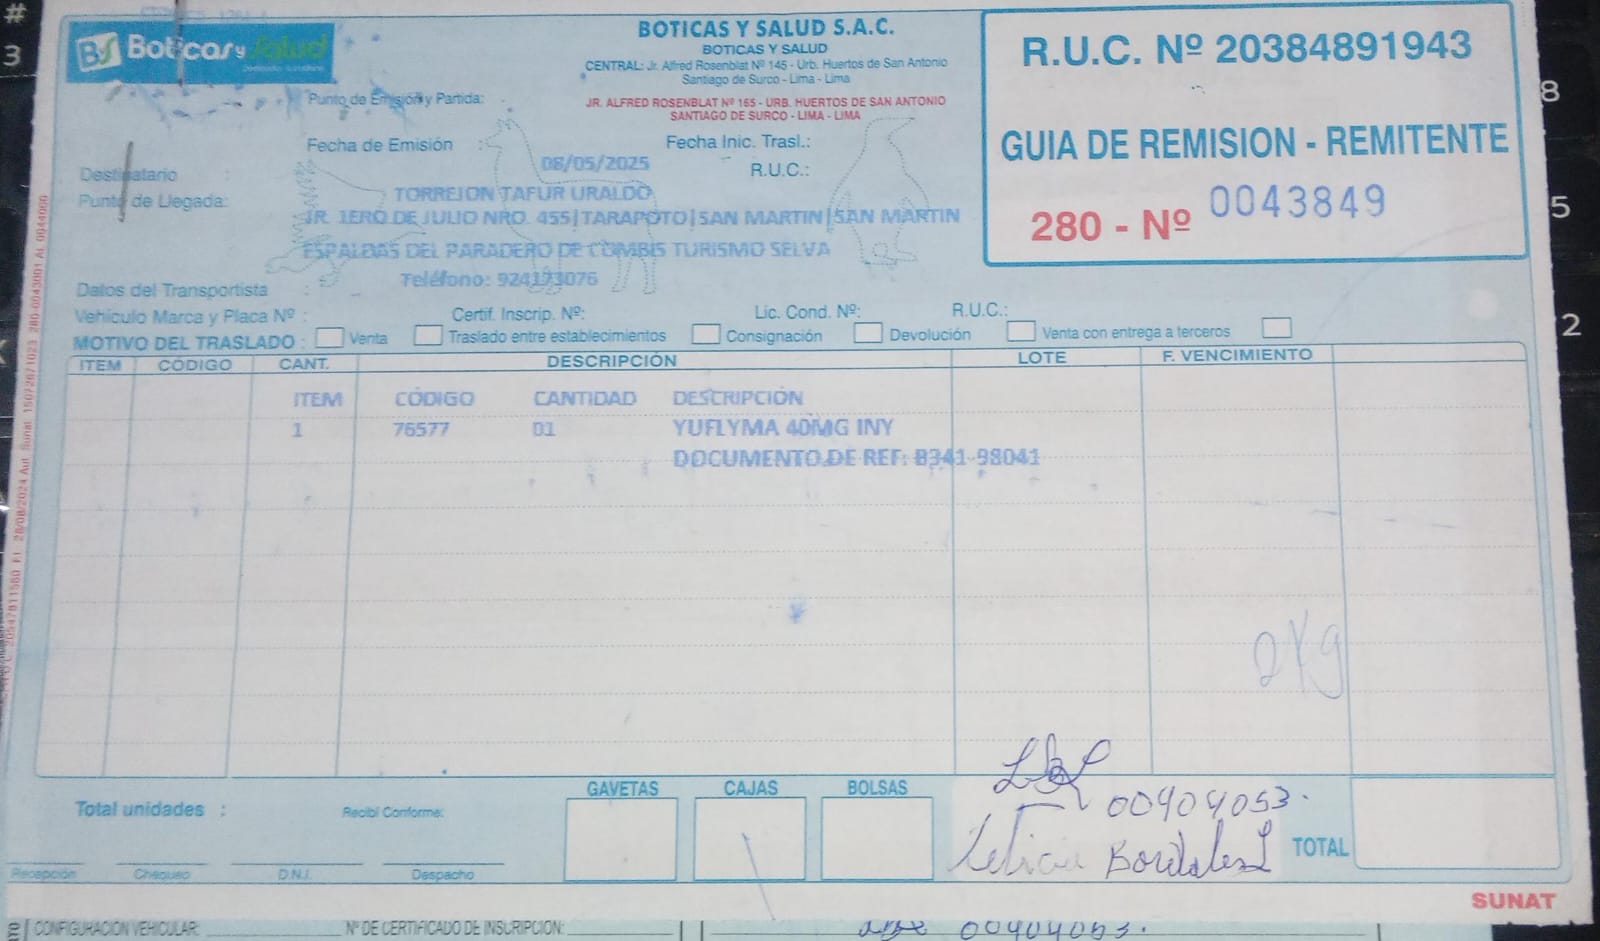 BS Boticas y Salud
BOTICAS Y SALUD S.A.C.
BOTICAS Y SALUD
CENTRAL: Jr. Alfred Rosenblat Nº 145 - Urb. Huertos de San Antonio
Santiago de Surco - Lima - Lima
Punto de Emisión y Partida:
JR. ALFRED ROSENBLAT Nº 165 - URB. HUERTOS DE SAN ANTONIO
SANTIAGO DE SURCO - LIMA - LIMA
R.U.C. Nº 20384891943
GUIA DE REMISION - REMITENTE
280 - Nº 0043849
Fecha de Emisión : 08/05/2025 Fecha Inic. Trasl.:
Destinatario : TORREJON TAFUR URALDO R.U.C.:
Punto de Llegada: JR. 1ERO DE JULIO NRO. 455|TARAPOTO|SAN MARTIN|SAN MARTIN
ESPALDAS DEL PARADERO DE COMBIS TURISMO SELVA
Teléfono: 924173076
Datos del Transportista :
Vehículo Marca y Placa Nº : Certif. Inscrip. Nº: Lic. Cond. Nº: R.U.C.:
MOTIVO DEL TRASLADO : Venta Traslado entre establecimientos Consignación Devolución Venta con entrega a terceros
ITEM CÓDIGO CANT. DESCRIPCIÓN LOTE F. VENCIMIENTO
ITEM CÓDIGO CANTIDAD DESCRIPCIÓN
1 76577 01 YUFLYMA 40MG INY
DOCUMENTO DE REF: B341-98041
2Kg
GAVETAS CAJAS BOLSAS
Total unidades : Recibí Conforme:
00404053.
Leticia Bordales L
TOTAL
Recepción Chequeo D.N.I. Despacho
SUNAT
CONFIGURACION VEHICULAR: Nº DE CERTIFICADO DE INSCRIPCION: 00404053.
#
3
8
5
2